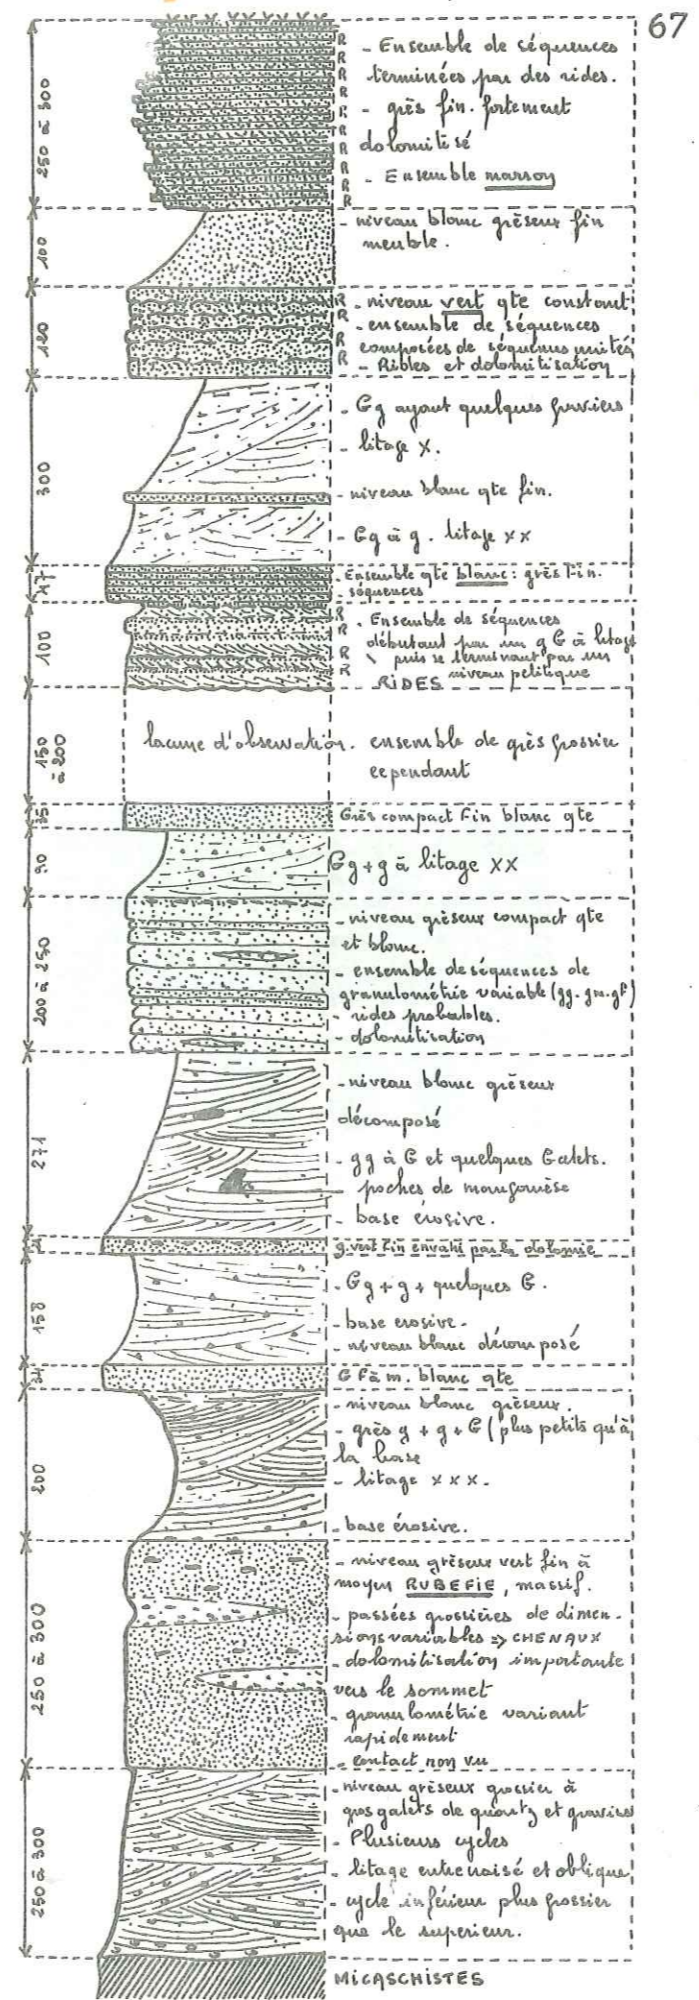 67
250 à 300
R
R
R
R
R
R
R
R
R
- Ensemble de séquences
terminées par des rides.
- grès fin. fortement
dolomitisé
- Ensemble marron
100
- niveau blanc gréseux fin
meuble.
120
R
R
R
R
- niveau vert qte constant
- ensemble de séquences
composées de séquences unités
- Rides et dolomitisation
300
- Gg ayant quelques graviers
- litage X.
- niveau blanc qte fin.
- Gg à g. litage xx
47
- Ensemble qte blanc : grès fin.
- séquences
100
R
R
R
R
- Ensemble de séquences
débutant par un gG à litage
puis se terminant par un
niveau pélitique
- RIDES
150
à 200
lacune d'observation. ensemble de grès grossier
cependant
35
Grès compact fin blanc qte
90
Gg+g à litage XX
200 à 250
- niveau gréseux compact qte
et blanc.
- ensemble de séquences de
granulométrie variable (gg. gm. gf)
- rides probables.
- dolomitisation
271
- niveau blanc gréseux
décomposé
- gg à G et quelques Galets.
poches de manganèse
- base érosive.
g. vert fin envahi par la dolomie
158
- Gg + g + quelques G.
- base erosive.
- niveau blanc décomposé
G F à m. blanc qte
200
- niveau blanc gréseux.
- grès g + g + G (plus petits qu'à
la base
- litage x x x.
- base érosive.
250 à 300
- niveau gréseux vert fin à
moyen RUBEFIE, massif.
- passées grossières de dimen-
sions variables => CHENAUX
- dolomitisation importante
vers le sommet
- granulométrie variant
rapidement
- contact non vu
250 à 300
- niveau gréseux grossier à
gros galets de quartz et graviers
- Plusieurs cycles
- litage entrecroisé et oblique
- cycle inférieur plus grossier
que le superieur.
MICASCHISTES